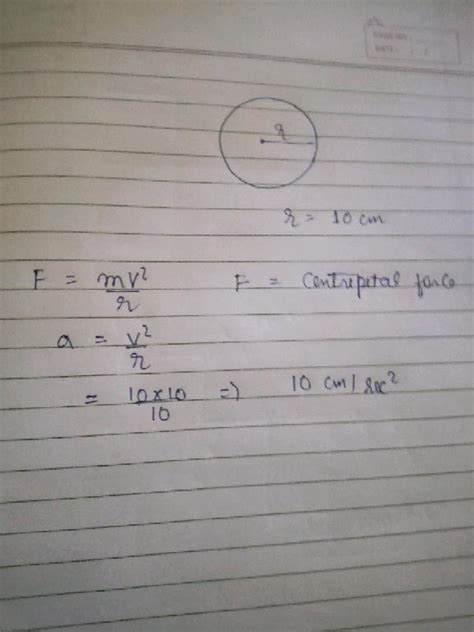 r
r = 10 cm
F = mv²/r F = Centripetal force
a = v²/r
= 10×10/10 => 10 cm/sec²
DATE: / /